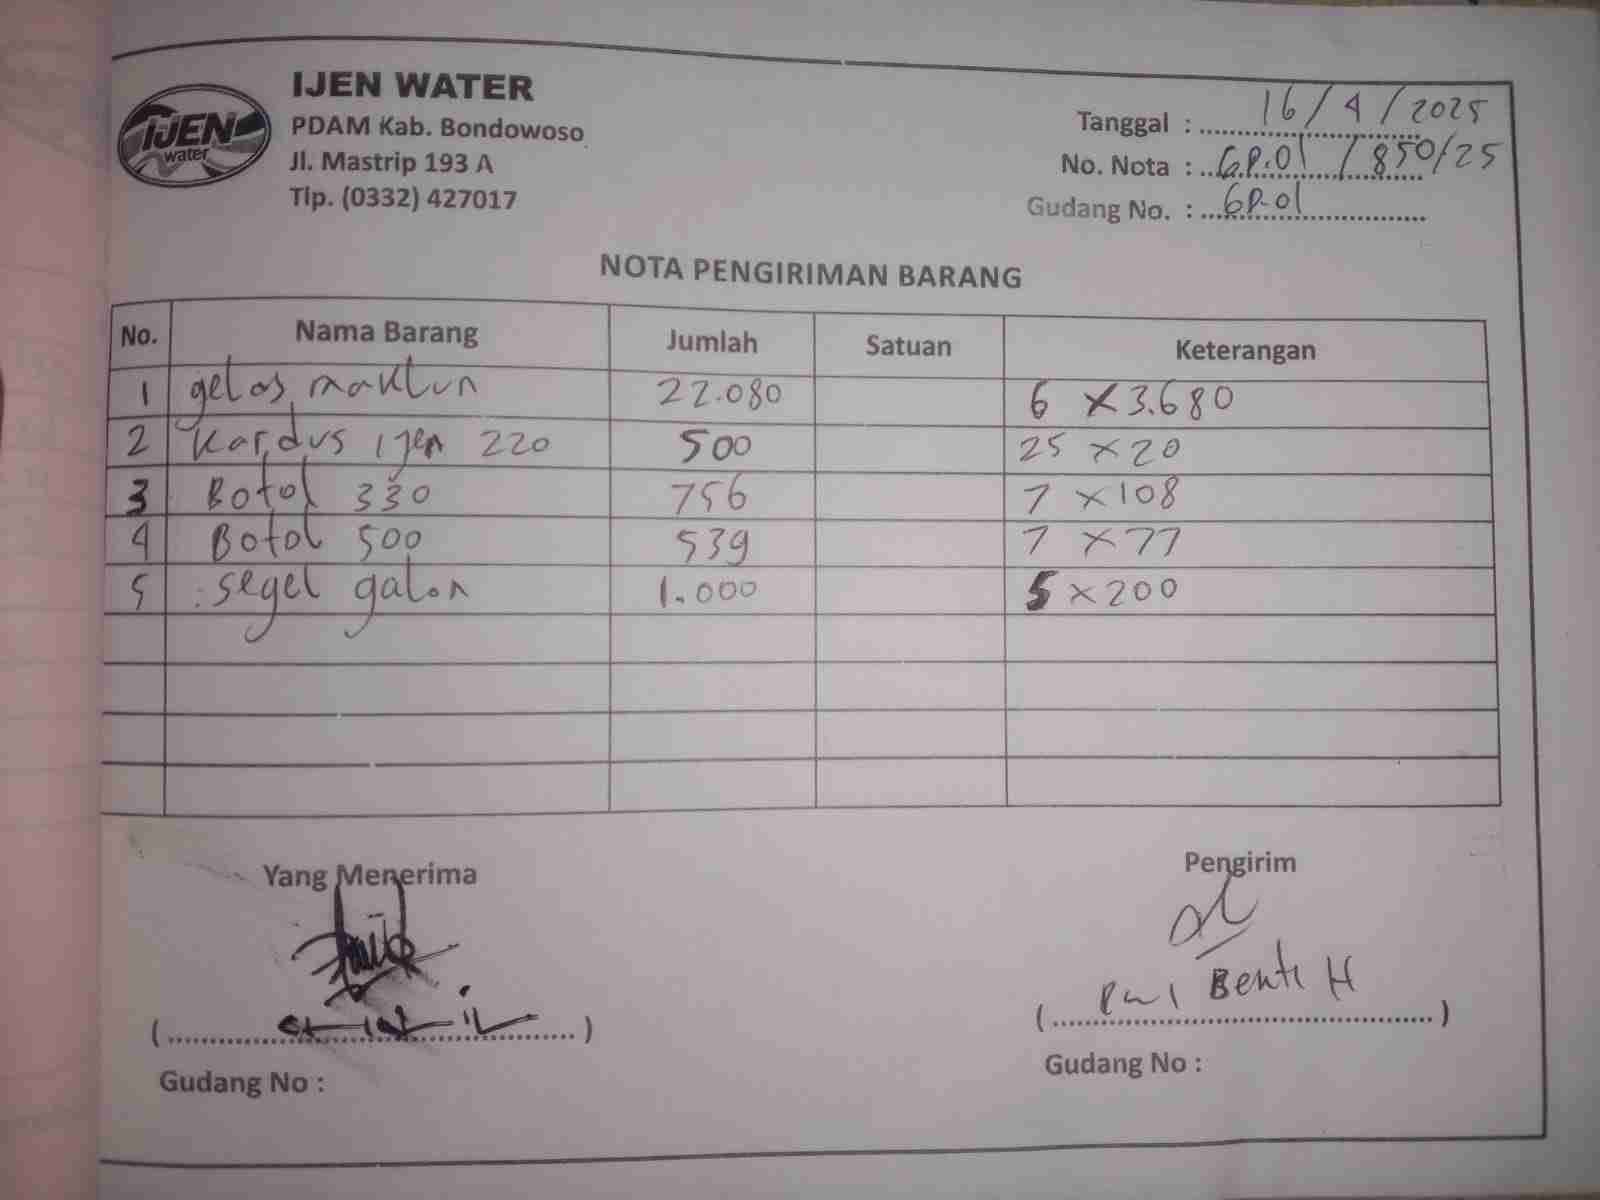 IJEN WATER
IJEN
water
PDAM Kab. Bondowoso
Jl. Mastrip 193 A
Tlp. (0332) 427017
Tanggal : 16/4/2025
No. Nota : GP.01 / 850/25
Gudang No. : GP.01
NOTA PENGIRIMAN BARANG
No. Nama Barang Jumlah Satuan Keterangan
1 gelas maklun 22.080 6 x 3.680
2 Kardus ijen 220 500 25 x 20
3 Botol 330 756 7 x 108
4 Botol 500 539 7 x 77
5 segel galon 1.000 5 x 200
Yang Menerima Pengirim
( ) ( H )
Gudang No : Gudang No :